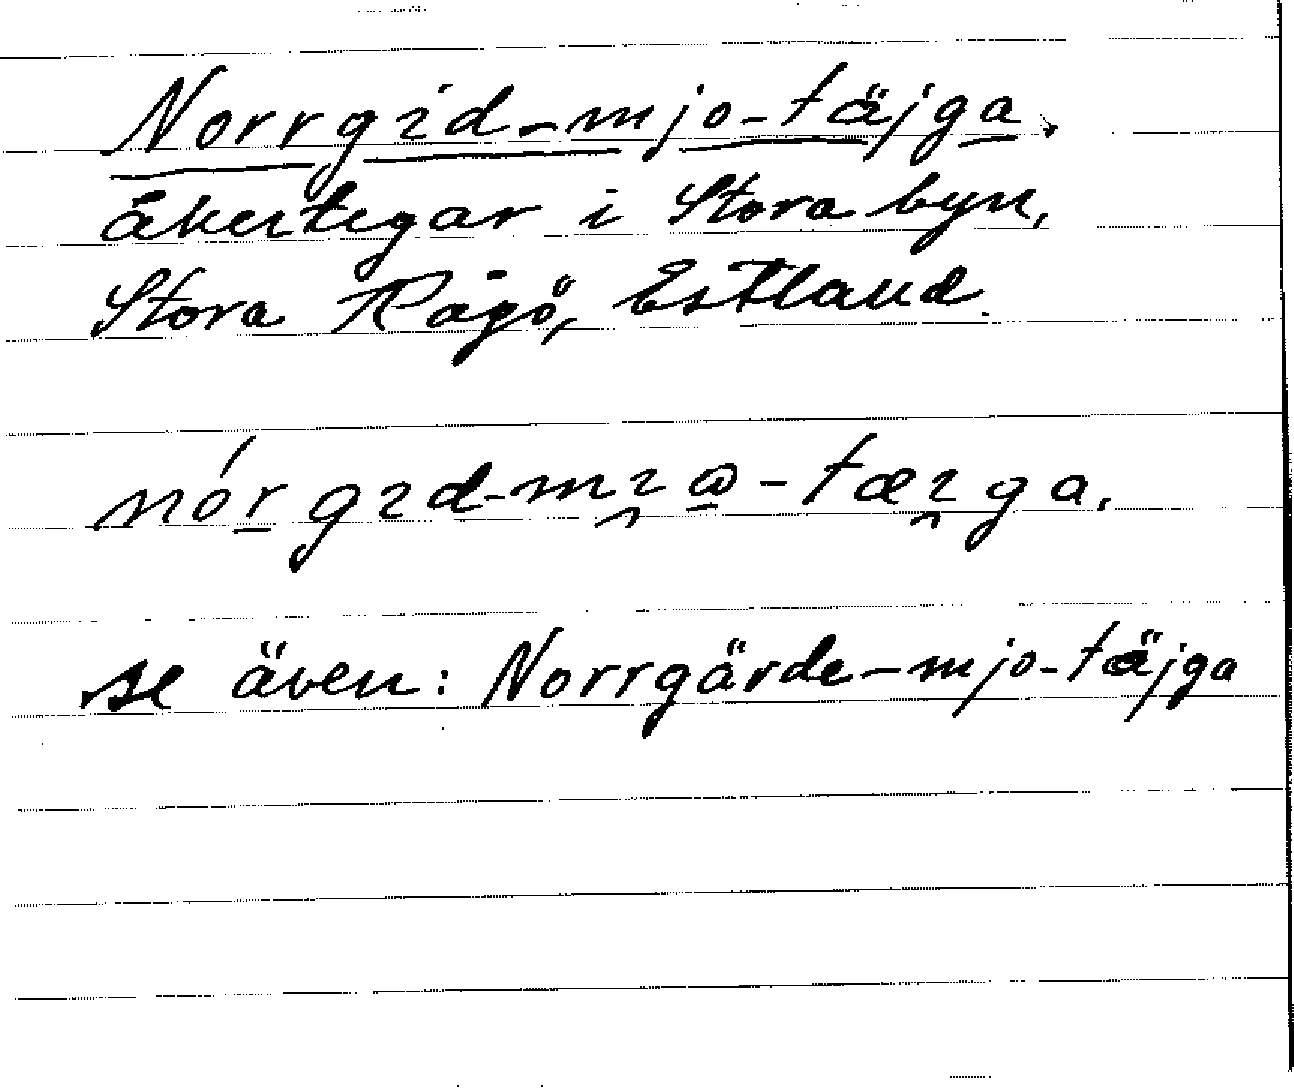 Norrgıd-mjo-täjga,
åkertegar i Stora byn,
Stora Rågö, Estland.
nórgıdmı̯ɷ-tæı̯ga.
se även: Norrgärde-mjo-täjga